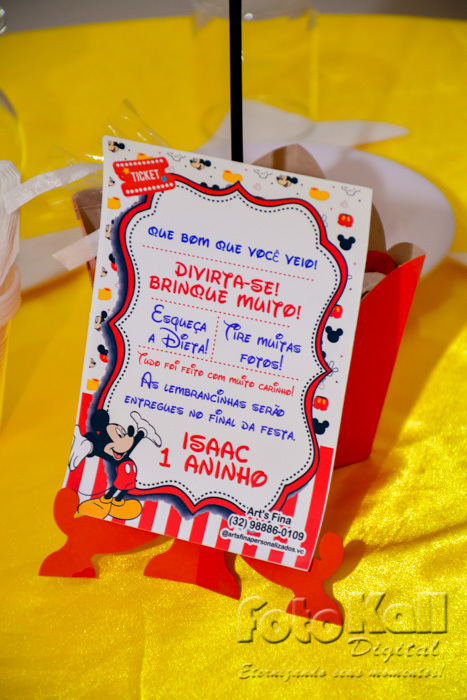 TICKET
QUE BOM QUE VOCÊ VEIO!
DIVIRTA-SE!
BRINQUE MUITO!
ESQUEÇA
A DIETA!
TIRE MUITAS
FOTOS!
TUDO FOI FEITO COM MUITO CARINHO!
AS LEMBRANCINHAS SERÃO
ENTREGUES NO FINAL DA FESTA.
ISAAC
1 ANINHO
Art's Fina
(32) 98886-0109
@artsfinapersonalizados.vc
fotoKall
Digital
Eternizando seus momentos!